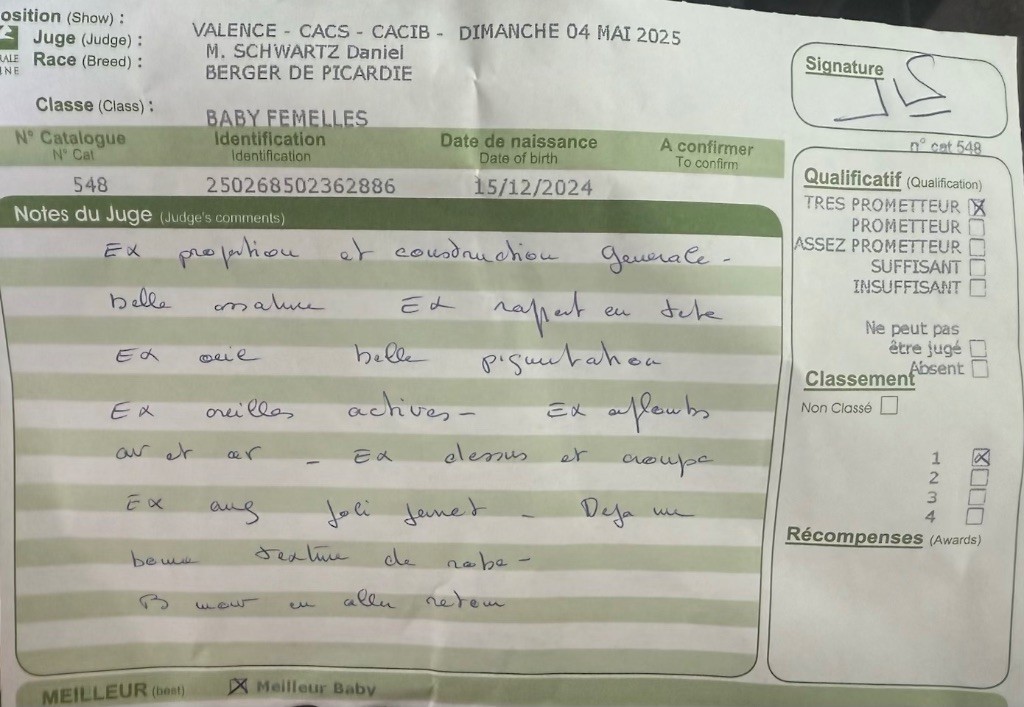 osition (Show) :
VALENCE - CACS - CACIB - DIMANCHE 04 MAI 2025
Juge (Judge) :
M. SCHWARTZ Daniel
RALE
INE
Race (Breed) :
BERGER DE PICARDIE
Classe (Class) :
BABY FEMELLES
Signature
N° Catalogue
N° Cat
Identification
Identification
Date de naissance
Date of birth
A confirmer
To confirm
n° cat 548
548
250268502362886
15/12/2024
Notes du Juge (Judge's comments)
Ex proportion et construction Generale -
belle ossature Ex rapport en tete
Ex oeil belle pigmentation
Ex oreilles actives - Ex aplombs
av et ar - Ex dessus et croupe
Ex ang Joli Jarret - Deja une
bonne texture de robe -
B mouv en aller retour
Qualificatif (Qualification)
TRES PROMETTEUR
PROMETTEUR
ASSEZ PROMETTEUR
SUFFISANT
INSUFFISANT
Ne peut pas
être jugé
Absent
Classement
Non Classé
1
2
3
4
Récompenses (Awards)
MEILLEUR (best)
Meilleur Baby